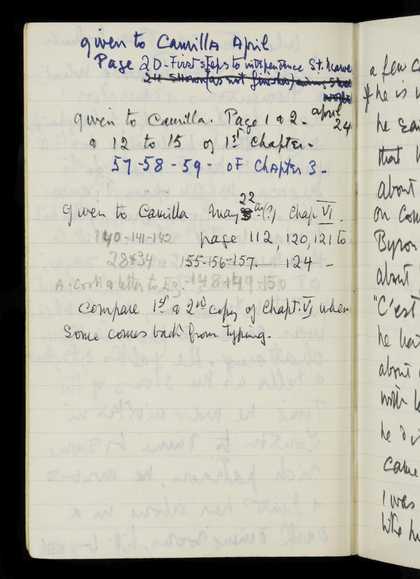 given to Camilla April
Page 20 - First steps to independence St.
given to Camilla. Page 1 & 2. april 24
& 12 to 15 of 1st Chapter.
57-58-59 - OF Chapter 3.
22
Given to Camilla may Chap VI.
140-141-142 page 112, 120, 121 to
28&34 155-156-157. 124 -
148+149-150
Compare 1st & 2nd copy of Chapt. VI when
some comes back from typing.
a few
he is
he
that
about
on
Byron
about
"C'est
he
about
with
he
came
I was